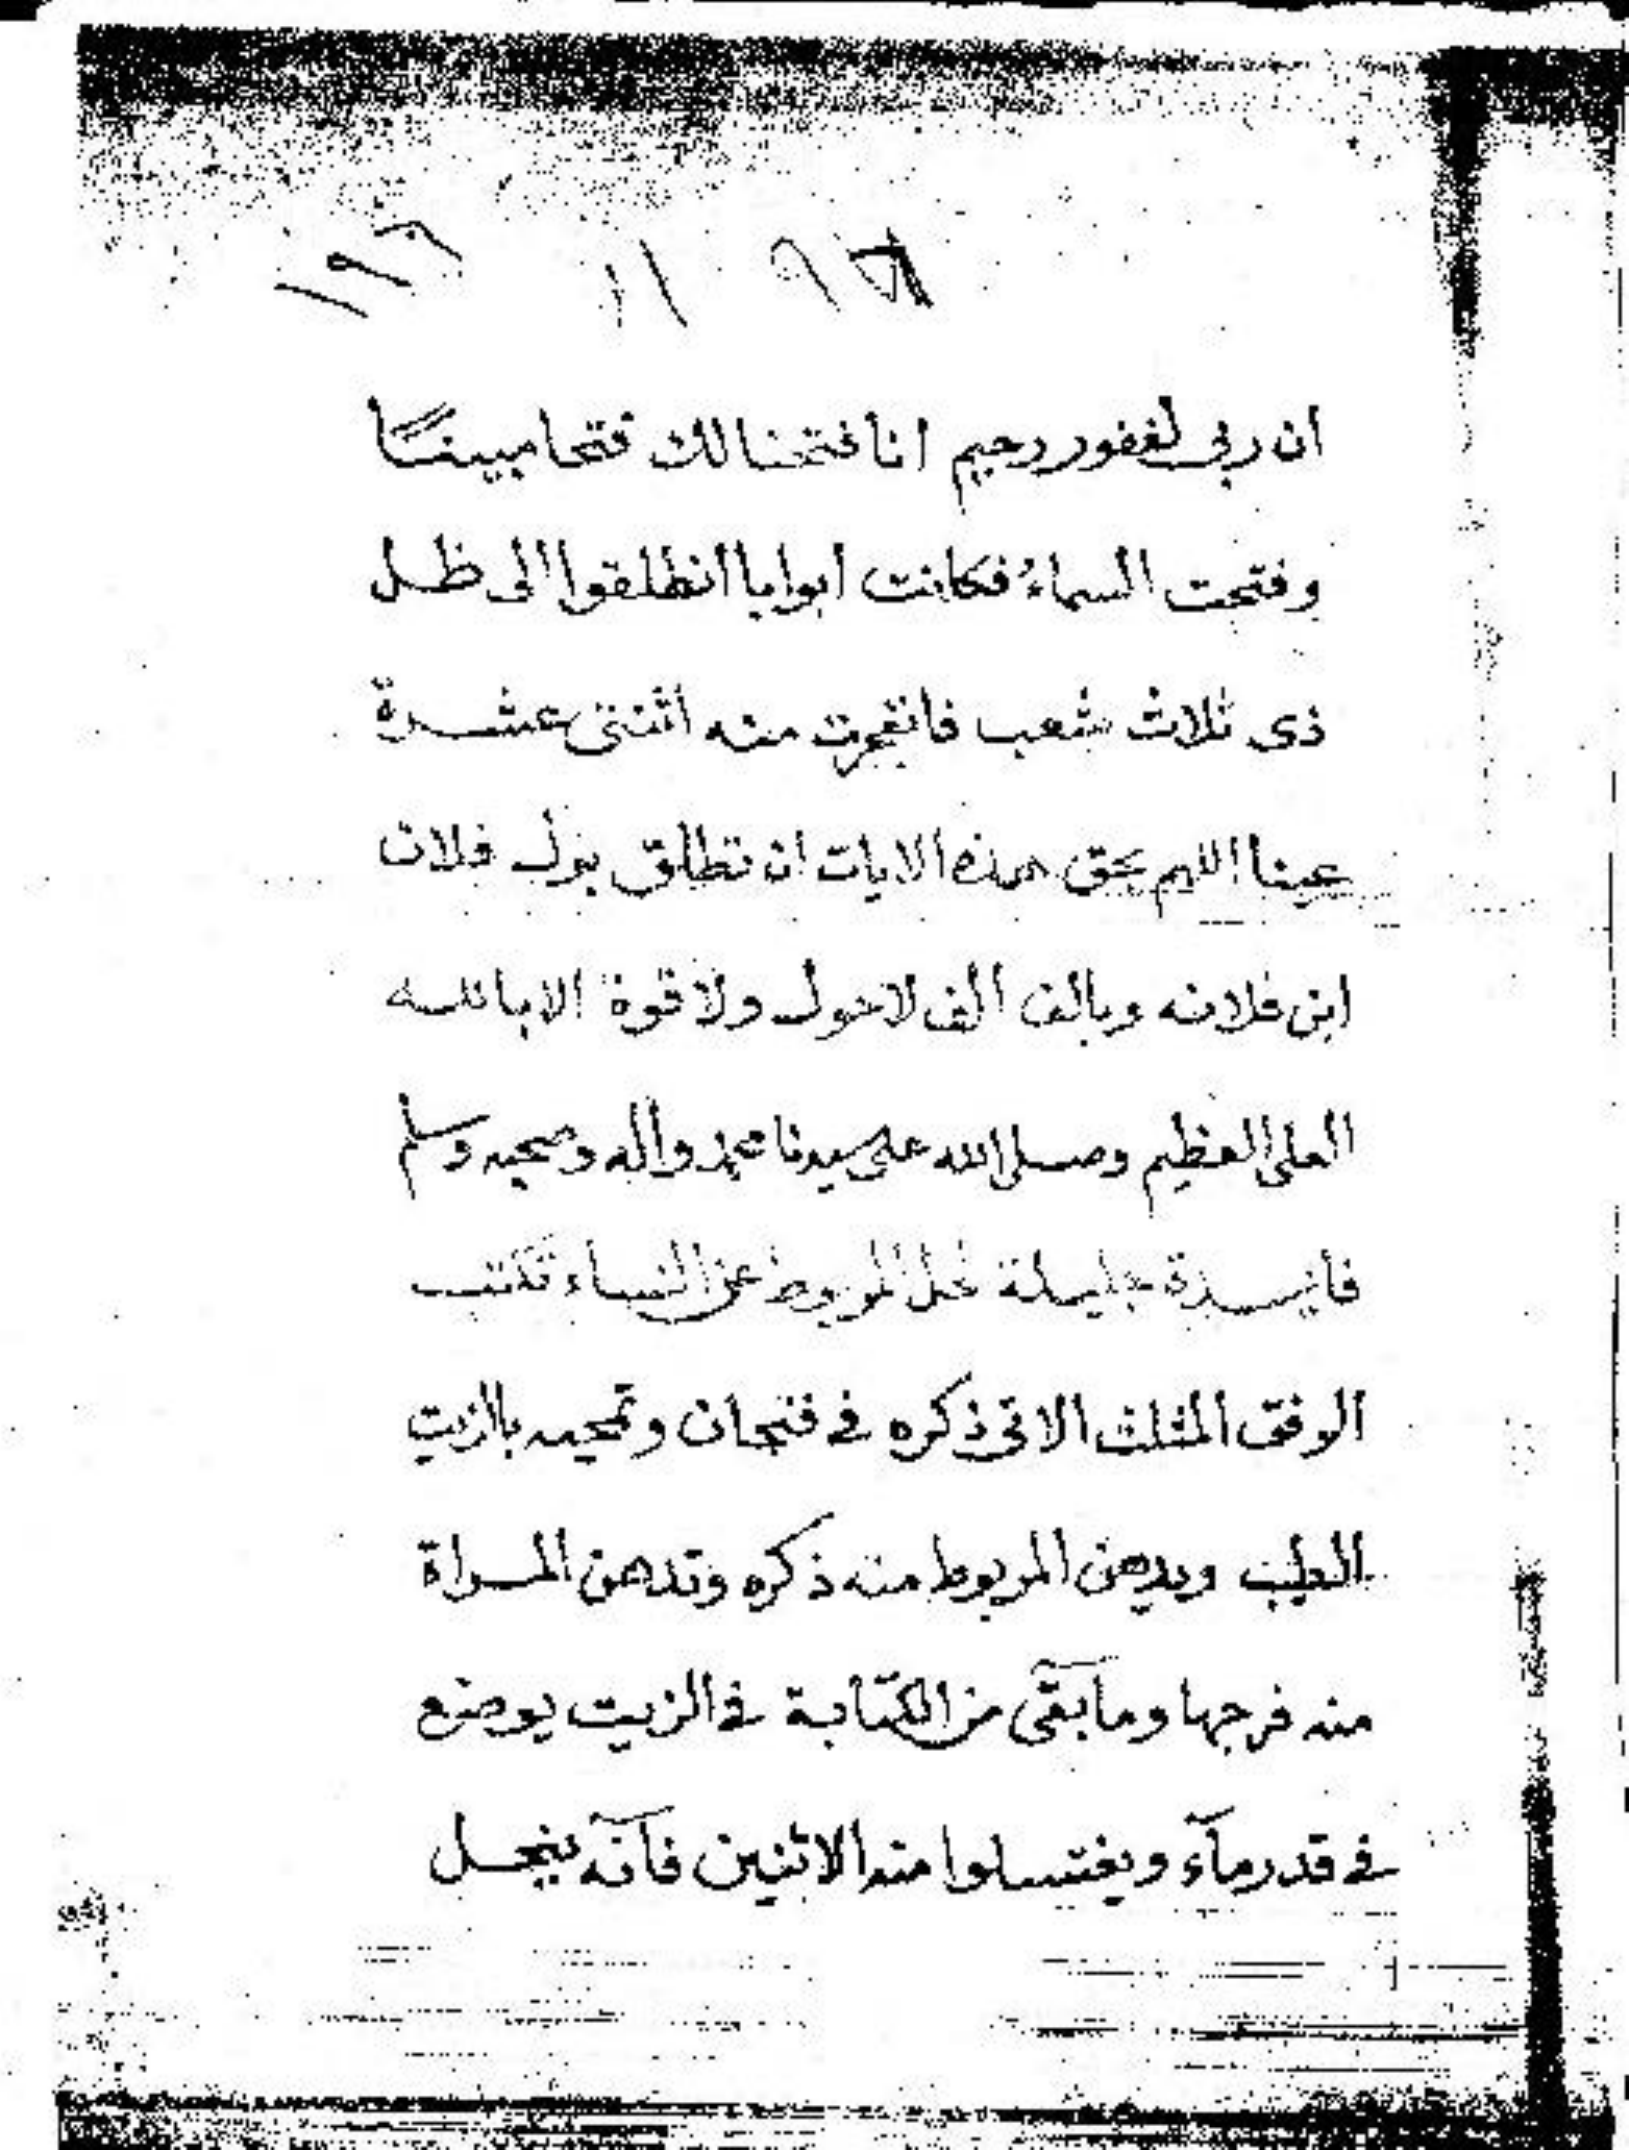 ان ربى لغفور رحيم انا فتحنا لك فتحا مبينًا
وفتحت السماءُ فكانت ابوابا انطلقوا الى ظل
ذى ثلاث شعب فانفجرت منه اثنتى عشرة
عينا اللهم بحق هذه الايات ان تطلق بول فلان
ابن فلانه وبالف الف لاحول ولا قوة الا بالله
العلى العظيم وصلى الله على سيدنا محمد واله وصحبه وسلم
فايدة جليلة لحل المربوط عن النساء تكتب
الوفق المثلث الاتى ذكره فى فنجان وتمحيه بالزيت
الطيب ويدهن المربوط منه ذكره وتدهن المراة
منه فرجها وما بقى من الكتابة فى الزيت يوضع
فى قدر مآء ويغتسلوا منه الاثنين فانه ينحل